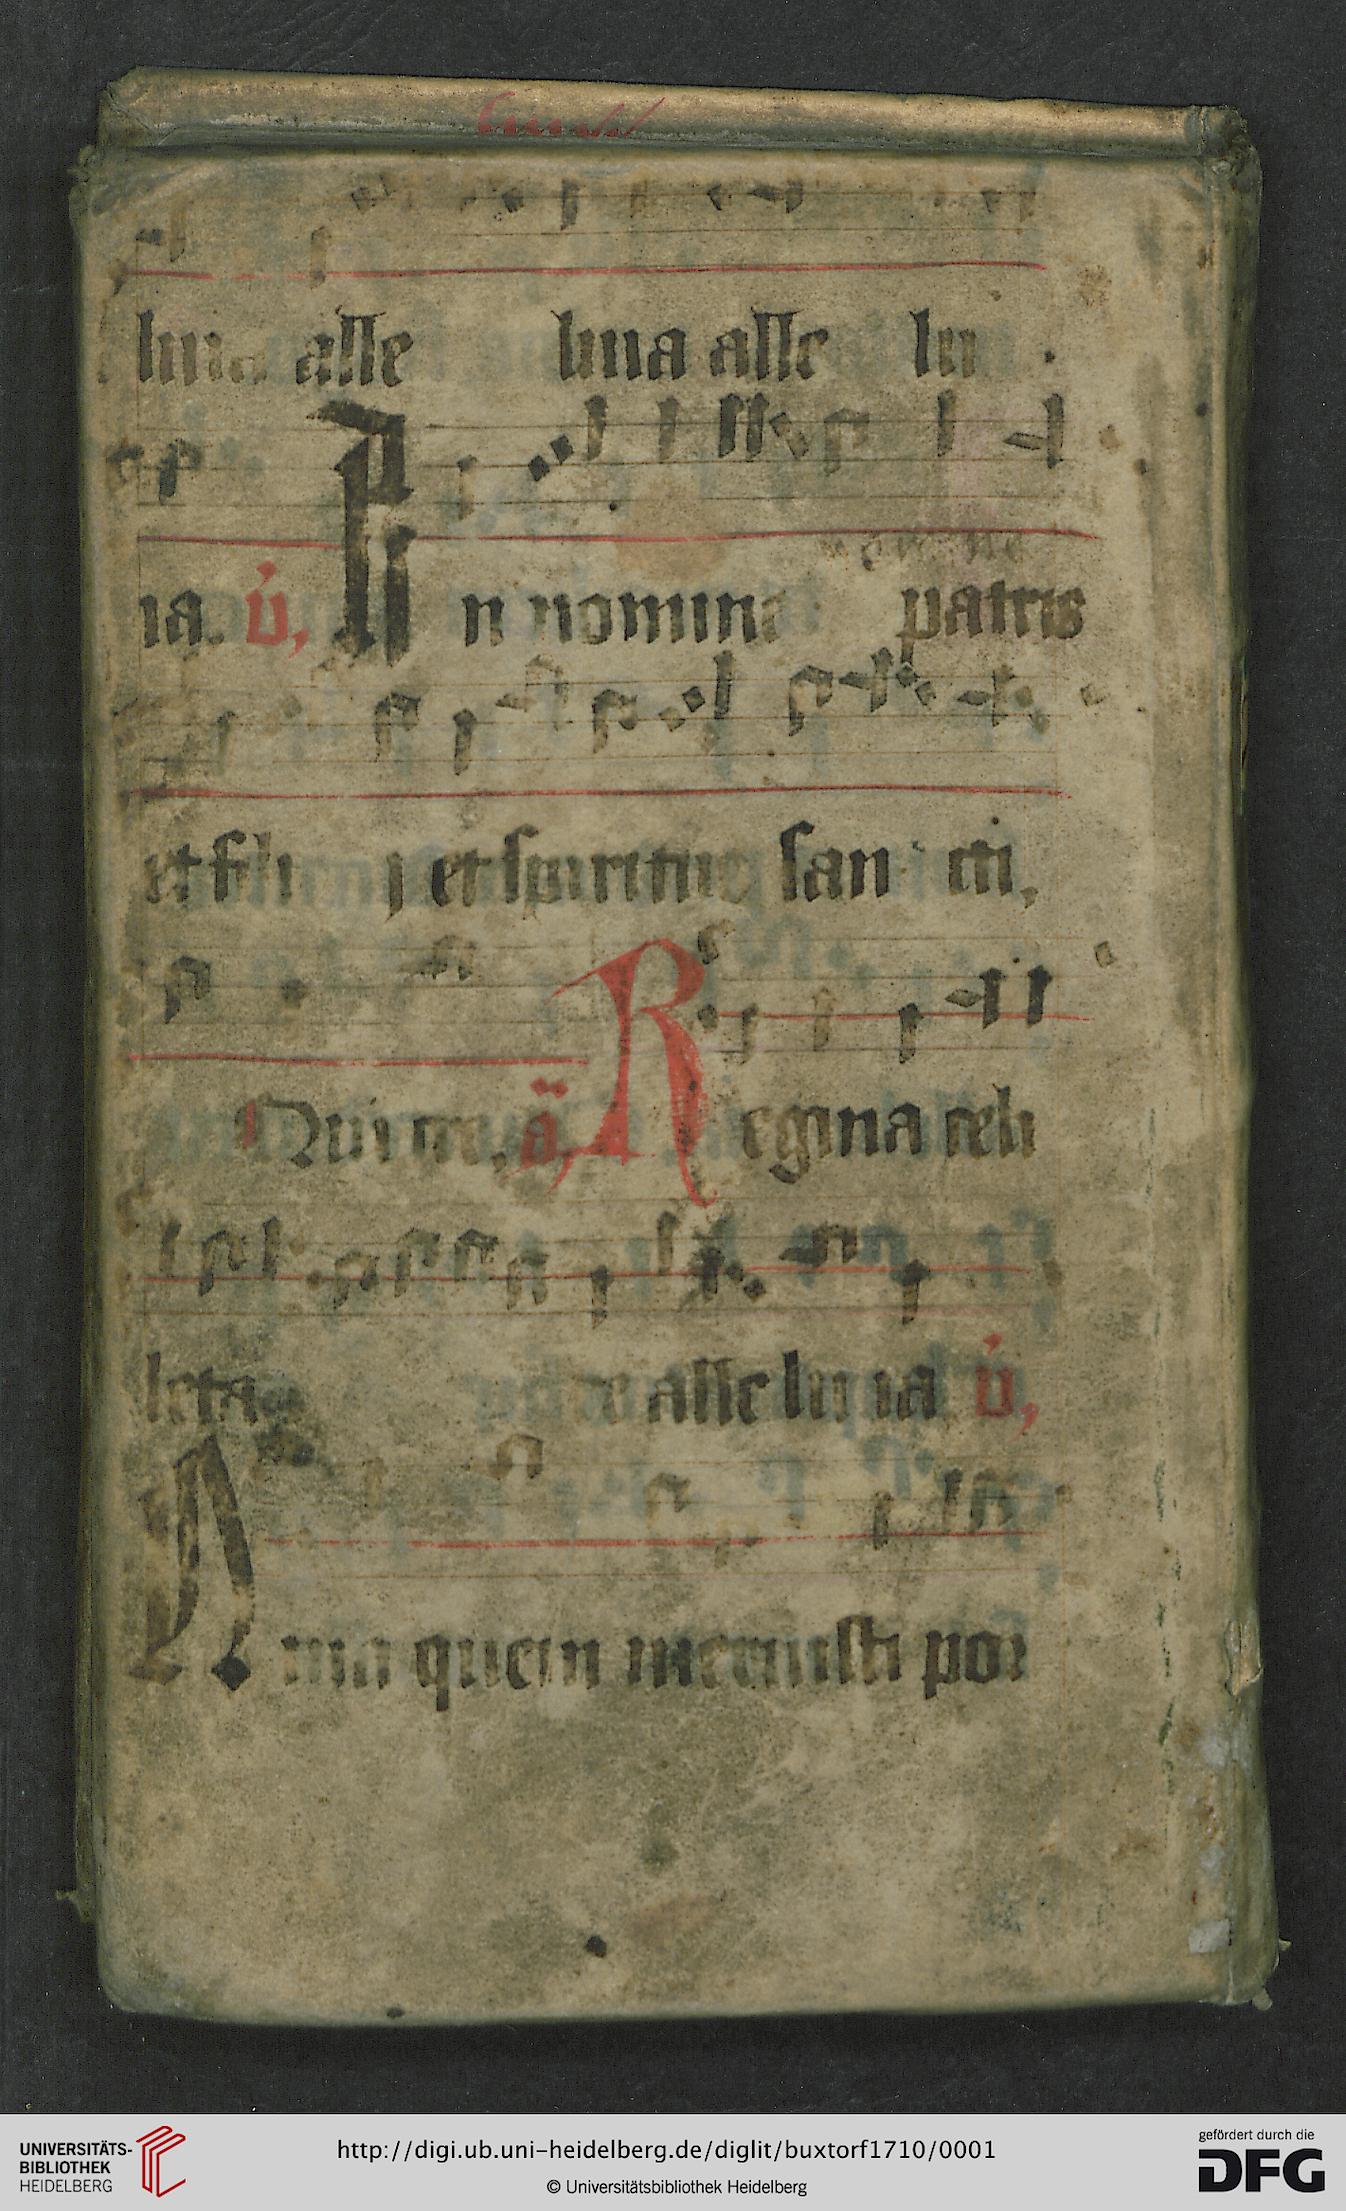 luia alle luia alle lu
ia. v, In nomine patris
et filij et spiritus san cti,
Qui cre, a Regina celi
leta re alleluia v,
Quia quem meruisti por
UNIVERSITÄTS-
BIBLIOTHEK
HEIDELBERG
http://digi.ub.uni-heidelberg.de/diglit/buxtorf1710/0001
© Universitätsbibliothek Heidelberg
gefördert durch die
DFG